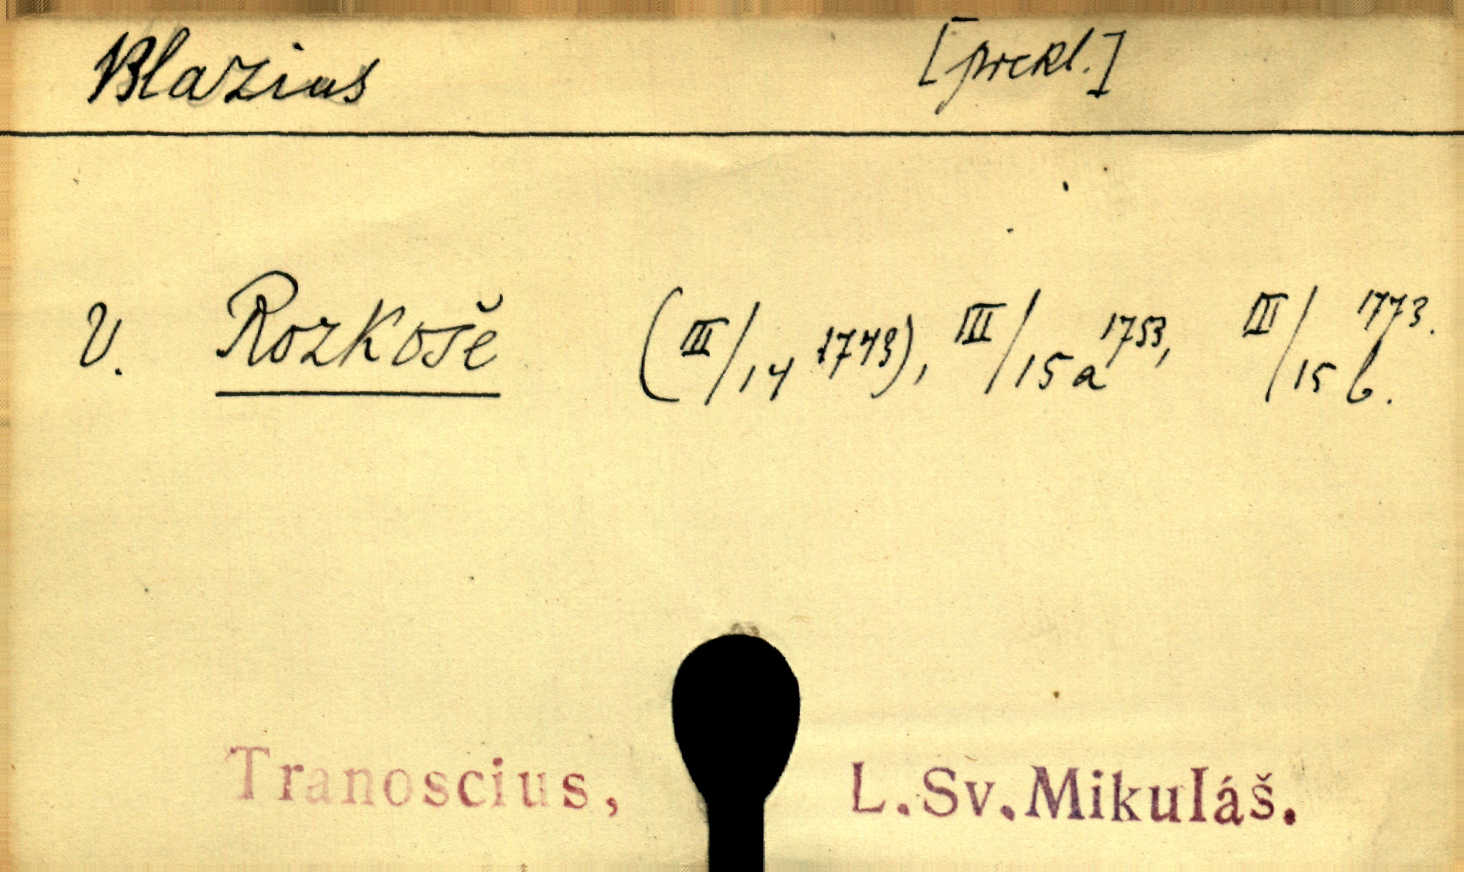 Blazius [prekl.]
V. Rozkoše (III/14 1749), III/15a 1753, III/15 b. 1773.
Tranoscius, L.Sv.Mikuláš.